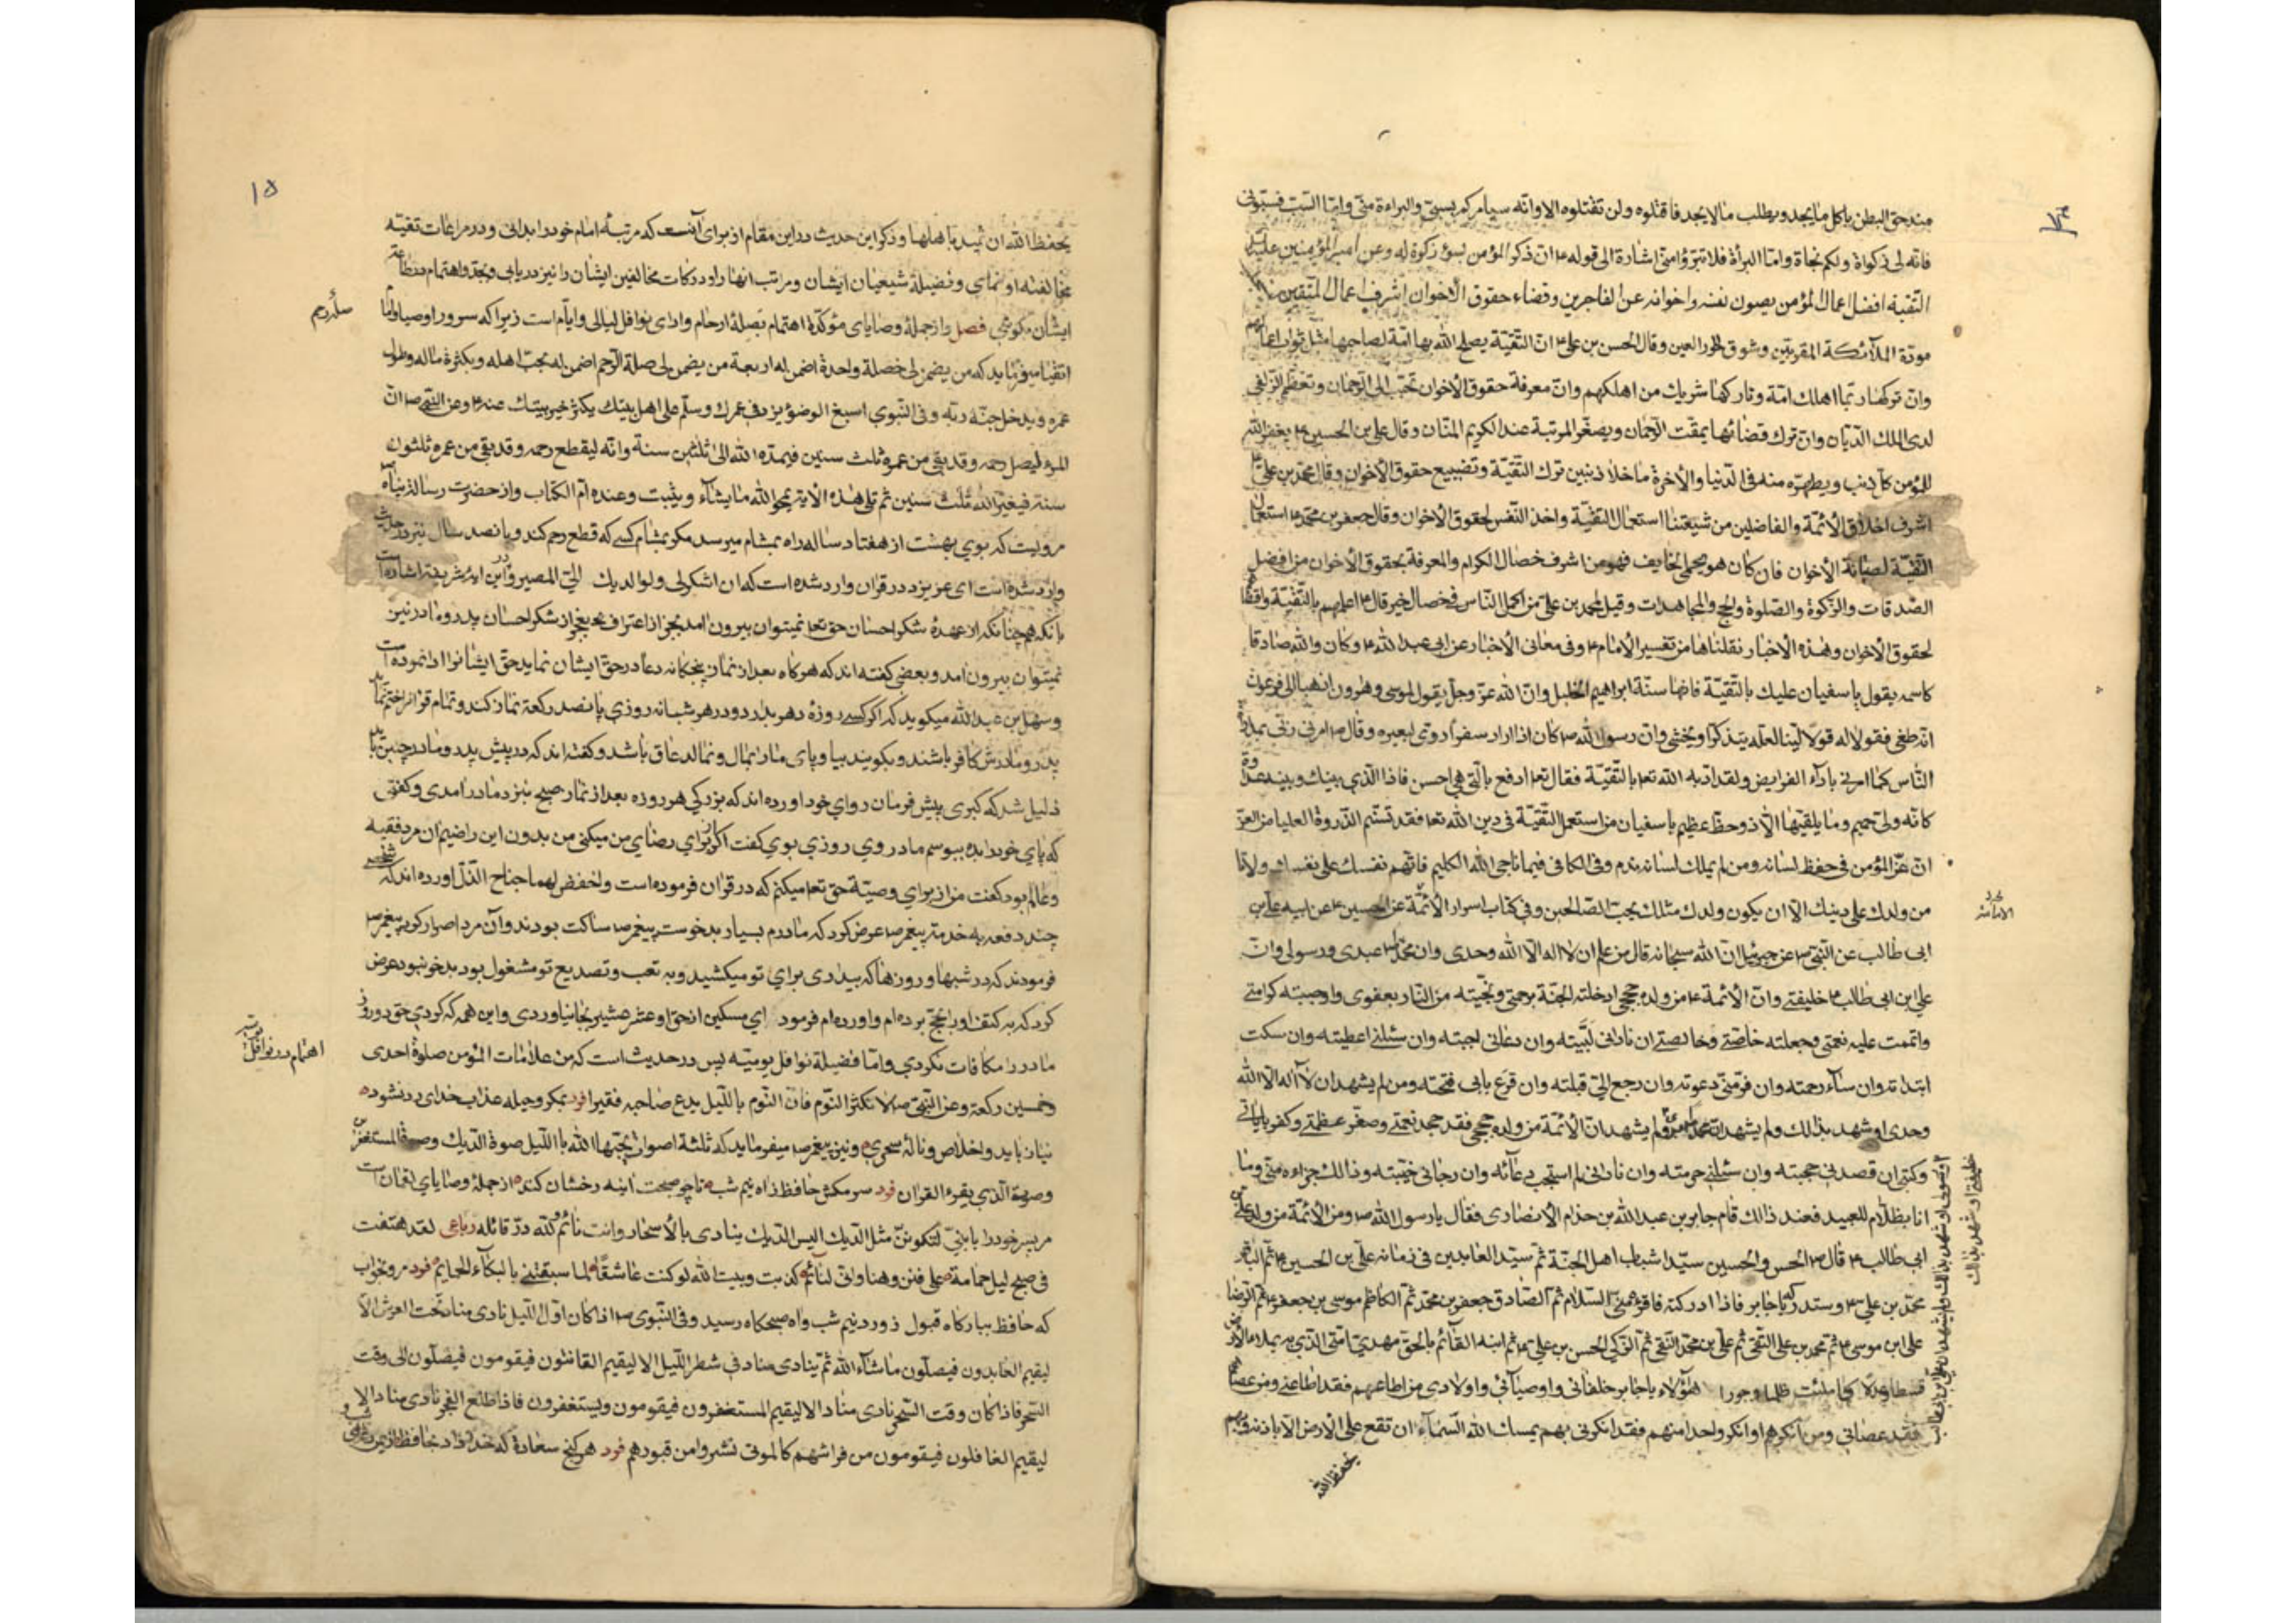 مندحق البطن یاکل ما یجد و یطلب ما لا یجد فاقتلوه ولن تقتلوه الا وانه سیامرکم بسبی والبراءة منی واما السب فسبونی
فانه لی زکواة ولکم نجاة واما البراة فلا تتبرؤا منی اشارة الی قوله ۴ ان ذکر المؤمن بسوء زکوة له وعن امیر المؤمنین علیه
التقیة افضل اعمال المؤمن یصون نفسه واخوانه عن الفاجرین وقضاء حقوق الاخوان اشرف اعمال المتقین
مودة الملائکة المقربین وشوق الحور العین وقال الحسن بن علی ۴ ان التقیة یصلح الله بها امة لصاحبها مثل ثواب اعمالهم
وان ترکها ربما اهلک امة وتارکها شریک من اهلکهم وان معرفة حقوق الاخوان تحبب الی الرحمان وتعظم الزلفی
لدی الملک الدیان وان ترک قضائها یمقت الرحمان ویصغر المرتبة عند الکریم المنان وقال علی بن الحسین ۴ یغفر الله
للمؤمن کل ذنب ویطهره منه فی الدنیا والاخرة ما خلا ذنبین ترک التقیة وتضییع حقوق الاخوان وقال محمد بن علی ۴
اشرف اخلاق الائمة والفاضلین من شیعتنا استعمال التقیة واخذ النفس لحقوق الاخوان وقال جعفر بن محمد ۴ استعمال
التقیة لصیانة الاخوان فان کان هو یحمی الخایف فهو من اشرف خصال الکرام والمعرفة بحقوق الاخوان من افضل
الصدقات والزکوة والصلوة والحج والمجاهدات وقیل لمحمد بن علی ۴ من اکمل الناس فی خصال الخیر قال ۴ اعملهم بالتقیة واقضاهم
لحقوق الاخوان وهذه الاخبار نقلناها من تفسیر الامام ۴ وفی معانی الاخبار عن ابی عبد الله ۴ وکان والله صادقا
کاسمه یقول یا سفیان علیک بالتقیة فانها سنة ابراهیم الخلیل وان الله عز وجل یقول لموسی وهرون اذهبا الی فرعون
انه طغی فقولا له قولا لینا لعله یتذکر او یخشی وان رسول الله ص کان اذا اراد سفرا روّی لبعیره وقال ص امرنی ربی بمداراة
الناس کما امرنی باداء الفرایض ولقد ادبه الله تعا بالتقیة فقال تعا ادفع بالتی هی احسن فاذا الذی بینک وبینه عداوة
کانه ولی حمیم وما یلقیها الا ذو حظ عظیم یا سفیان من استعمل التقیة فی دین الله تعا فقد تسنم الذروة العلیا من العز
ان عز المؤمن فی حفظ لسانه ومن لم یملک لسانه ندم وفی الکافی فیما ناجی الله الکلیم فاتهم نفسک علی نفسک ولا تأ
من ولدک علی دینک الا ان یکون ولدک مثلک یحب الصالحین وفی کتاب اسرار الائمة عن الحسین ۴ عن ابیه علی بن
ابی طالب عن النبی ص عن جبرئیل ان الله سبحانه قال من علم ان لا اله الا الله وحدی وان محمدا ص عبدی ورسولی وان
علی ابن ابی طالب ۴ خلیفتی وان الائمة ۴ من ولده حججی ادخلته الجنة برحمتی ونجیته من النار بعفوی واوجبته کرامتی
واتممت علیه نعمتی وجعلته خاصتی وخالصتی ان نادانی لبیته وان دعانی اجبته وان سئلنی اعطیته وان سکت
ابتداته وان ساء رحمته وان فر منی دعوته وان رجع الی قبلته وان قرع بابی فتحته ومن لم یشهد ان لا اله الا الله
وحدی او شهد بذالک ولم یشهد ان محمدا ولم یشهد ان الائمة من ولده حججی فقد جحد نعمتی وصغر عظمتی وکفر بایاتی
وکتبی ان قصدنی حجبته وان سئلنی حرمته وان نادانی لم استجب دعائه وان رجانی خیبته وذالک جزاءه منی وما
انا بظلام للعبید فعند ذالک قام جابر بن عبد الله بن حزام الانصاری فقال یا رسول الله ص ومن الائمة من ولد علی
ابی طالب ۴ قال ص الحسن والحسین سیدا شباب اهل الجنة ثم سید العابدین فی زمانه علی بن الحسین ۴ ثم الباقر
محمد بن علی ۴ وستدرکه یا جابر فاذا ادرکته فاقرءه منی السلام ثم الصادق جعفر بن محمد ثم الکاظم موسی بن جعفر ۴ ثم الرضا
علی ابن موسی ۴ ثم محمد بن علی التقی ثم علی بن محمد النقی ثم الزکی الحسن بن علی ۴ ثم ابنه القائم بالحق مهدی امتی الذی به یملاء الارض
قسطا وعدلا کما ملئت ظلما وجورا هؤلاء یا جابر خلفائی واوصیائی واولادی من اطاعهم فقد اطاعنی ومن عصاهم
فقد عصانی ومن انکرهم او انکر واحدا منهم فقد انکرنی بهم یمسک الله السماء ان تقع علی الارض الا باذنه وبهم
یحفظ الله
۱۵
یحفظ الله ان تمید باهلها وذکر این حدیث در این مقام از برای آنست که مرتبهٔ امام خود را بدانی و در مراعات تقیه
مخالفت او ننمای وفضیلة شیعیان ایشان ومراتب انها را ودرکات مخالفین ایشان را نیز دریابی وبجد واهتمام در
ایشان بکوشی فصل واز جملهٔ وصایای مؤکدة اهتمام بصلهٔ ارحام وادای نوافل لیالی وایام است زیرا که سرور اوصیا
صلهٔ رحم
اتقیا میفرماید که من یضمن لی خصلة واحدة اضمن له اربعة من یضمن لی صلة الرحم اضمن له بحب اهله وبکثرة ماله وطول
عمره ویدخل جنة ربه وفی النبوی اسبغ الوضوء یزد فی عمرک وسلم علی اهل بیتک یکثر خیر بیتک عنه ۴ وعن النبی ص ان
المرء لیصل رحمه وقد بقی من عمره ثلث سنین فیمده الله الی ثلثین سنة وانه لیقطع رحمه وقد بقی من عمره ثلثون
سنة فیغیره الله ثلث سنین ثم تلی هذه الایة یمحو الله ما یشاء ویثبت وعنده ام الکتاب واز حضرت رسالة پناه
مرویست که بوی بهشت از هفتاد ساله راه بمشام میرسد مگر بمشام کسی که قطع رحم کند وپانصد سال نیز در حدیث
وارد شده است ای عزیز در قران وارد شده است که ان اشکر لی ولوالدیک الی المصیر ودر این ایهٔ شریفه اشاره است
بانکه همچنانکه از عهدهٔ شکر احسان حق تعا نمیتوان بیرون امد بجز از اعتراف بعجز از شکر احسان پدر ومادر نیز
نمیتوان بیرون امد وبعضی گفته اند که هرگاه بعد از نماز پنجگانه دعا در حق ایشان نماید حق ایشانرا ادا نموده است
وسهل بن عبد الله میگوید که اگر کسی روزهٔ دهر بدارد ودر هر شبانه روزی پانصد رکعة نماز کند وتمام قران ختم نماید
پدر ومادرش کافر باشند وبگویند بیا وپای ما را بمال ونمالد عاق باشد وگفته اند که در پیش پدر ومادر چنین باید
ذلیل شد که کبری پیش فرمان روای خود اورده اند که بزرگی هر روزه بعد از نماز صبح نزد مادر امدی وگفتی
که پای خود را بده ببوسم مادر وی روزی بوی گفت اگر از برای رضای من میکنی من بدون این راضیم ان مرد فقیه
وعالم بود گفت من از برای وصیة حق تعا میکنم که در قران فرموده است واخفض لهما جناح الذل اورده اند که شخصی
چند دفعه به خدمة پیغمبر ص عرض کرد که مادرم بسیار بدخوست پیغمبر ص ساکت بودند وآن مرد اصرار کرد پیغمبر ص
فرمودند که در شبها وروزها که بیداری برای تو میکشید وبه تعب وتصدیع تو مشغول بود بدخو نبود عرض
کرد که به کتف او را بحج برده ام واورده ام فرمود ای مسکین از حق او عشر عشیر بجا نیاوردی واین همه که کردی حق دو روز
اهتمام در نوافل یومیه
مادر را مکافات نکردی واما فضیلة نوافل یومیه پس در حدیث است که من علامات المؤمن صلوة احدی
وخمسین رکعة وعن النبی ص لا تکثر النوم فان النوم باللیل یدع صاحبه فقیرا فرد بمکر وحیله عذاب خدای رد نشود
نیاز باید واخلاص ونالهٔ سحری ونیز پیغمبر ص میفرماید که ثلثة اصوات یحبها الله باللیل صوة الدیک وصوة المستغفرین
وصوة الذی یقرء القران فرد سر مکش حافظ ز اه نیم شب تا چو صبحت اینه رخشان کنند از جملهٔ وصایای لقمان است
مر پسر خود را یا بنی لتکونن مثل الدیک الیس الدیک ینادی بالاسحار وانت نائم لله در قائله رباعی لقد هتفت
فی صبح لیل حمامة علی فنن وهنا وانی لنائم کذبت وبیت الله لو کنت عاشقا لما سبقتنی بالبکاء الحمایم فرد مرو بخواب
که حافظ ببارگاه قبول ز ورد نیم شب واه صبحگاه رسید وفی النبوی ص اذا کان اول اللیل نادی مناد تحت العرش الا
لیقیم العابدون فیصلون ما شاء الله ثم ینادی مناد فی شطر اللیل الا لیقیم القانتون فیقومون فیصلون الی وقت
السحر فاذا کان وقت السحر نادی مناد الا لیقیم المستغفرون فیقومون ویستغفرون فاذا طلع الفجر نادی مناد الا
لیقیم الغافلون فیقومون من فراشهم کالموتی نشروا من قبورهم فرد هر گنج سعادة که خدا داد بحافظ از یمن